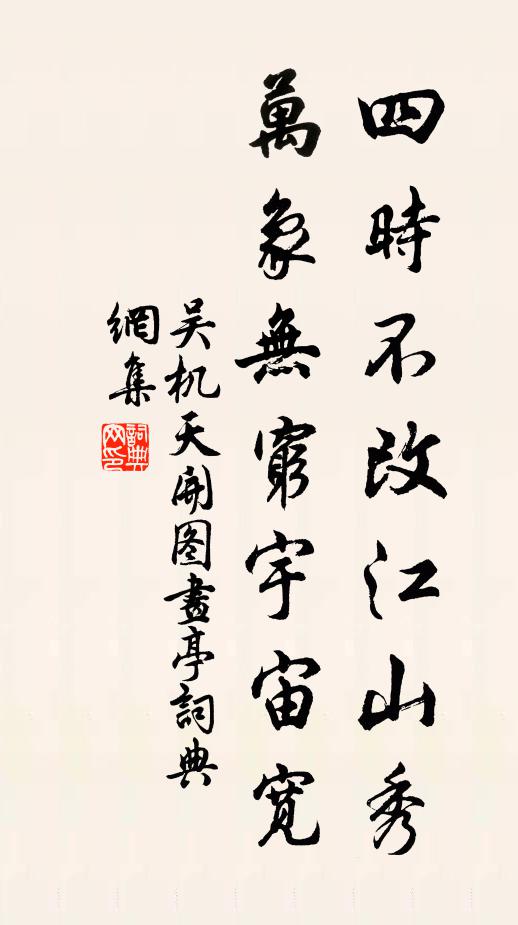 四時不改江山秀
萬象無窮宇宙寬
吴机天開图畫亭詞典
網集
詞典
网印